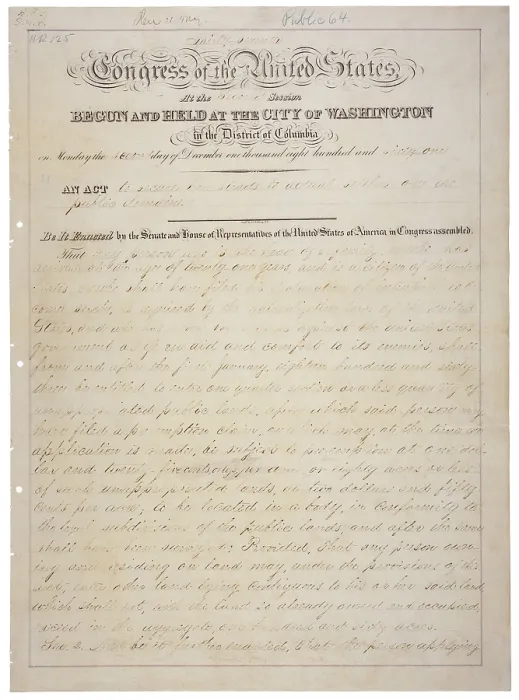 Public 64.
H.R. 125
Thirty-seventh
Congress of the United States,
At the Second Session
BEGUN AND HELD AT THE CITY OF WASHINGTON
in the District of Columbia
on Monday the second day of December one thousand eight hundred and sixty-one
AN ACT to secure homesteads to actual settlers on the
public domain.
Be It Enacted by the Senate and House of Representatives of the United States of America in Congress assembled,
That any person who is the head of a family, or who has
arrived at the age of twenty-one years, and is a citizen of the United
States, or who shall have filed his declaration of intention to be
come such, as required by the naturalization laws of the United
States, and who has never borne arms against the United States
government or given aid and comfort to its enemies, shall,
from and after the first January, eighteen hundred and sixty
three be entitled to enter one quarter section or a less quantity of
unappropriated public lands, upon which said person may
have filed a preemption claim, or which may, at the time the
application is made, be subject to preemption at one dol-
lar and twenty five cents, or less, per acre; or eighty acres or less
of such unappropriated lands, at two dollars and fifty
cents per acre, to be located in a body, in conformity to
the legal subdivisions of the public lands, and after the same
shall have been surveyed: Provided, That any person own-
ing and residing on land may, under the provisions of this
act, enter other land lying contiguous to his or her said land,
which shall not, with the land so already owned and occupied,
exceed in the aggregate one hundred and sixty acres.
Sec. 2. And be it further enacted, That the person applying